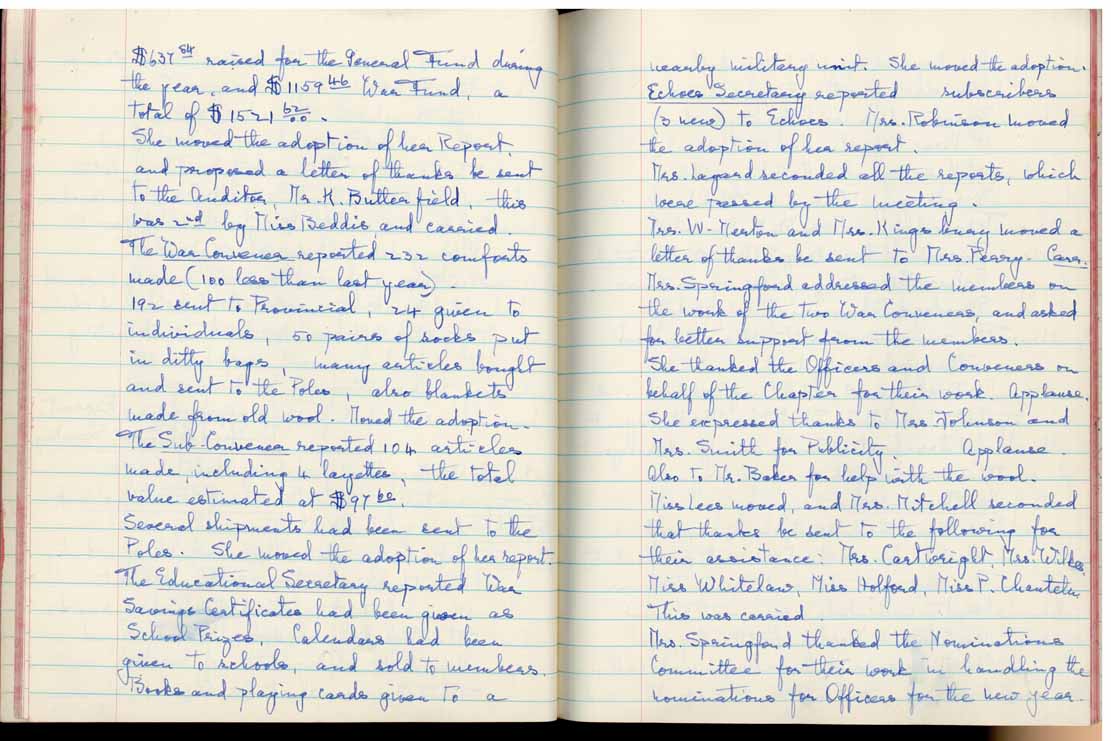 $637 84 raised for the General Fund during
the year, and $1159 46 War Fund, a
total of $1521 62/00.
She moved the adoption of her Report,
and proposed a letter of thanks be sent
to the Auditor, Mr. H. Butterfield, this
was 2nd by Miss Beddis and carried.
The War Convener reported 232 comforts
made (100 less than last year).
192 sent to Provincial, 24 given to
individuals, 50 pairs of socks put
in ditty bags, many articles bought
and sent to the Poles, also blankets
made from old wool. Moved the adoption.
The Sub-Convener reported 104 articles
made, including 4 layettes, the total
value estimated at $97 60.
Several shipments had been sent to the
Poles. She moved the adoption of her report.
The Educational Secretary reported War
Savings Certificates had been given as
School Prizes, Calendars had been
given to schools, and sold to members.
Books and playing cards given to a
nearby military unit. She moved the adoption.
Echoes Secretary reported subscribers
(3 new) to Echoes. Mrs. Robinson moved
the adoption of her report.
Mrs. Layard seconded all the reports, which
were passed by the meeting.
Mrs. W. Merton and Mrs. Kingsbury moved a
letter of thanks be sent to Mrs. Perry. Carr.
Mrs. Springford addressed the members on
the work of the two War Conveners, and asked
for better support from the members.
She thanked the Officers and Conveners on
behalf of the Chapter for their work. Applause.
She expressed thanks to Mrs Johnson and
Mrs. Smith for Publicity. Applause.
Also to Mr. Baker for help with the wool.
Miss Lees moved, and Mrs. Mitchell seconded
that thanks be sent to the following for
their assistance: Mrs. Cartwright, Mrs. Wilkes,
Miss Whitelaw, Miss Holford, Miss P.
This was carried.
Mrs. Springford thanked the Nominations
Committee for their work in handling the
nominations for Officers for the new year.